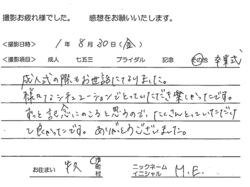 撮影お疲れ様でした。 感想をお願いいたします。
<撮影日時> 1年 8月 30日(金)
<撮影項目> 成人 七五三 ブライダル 記念 その他 卒業式
成人式の際もお世話になりました。
様々なシチュエーションでとっていただき楽しかったです。
ずっと記念にのこると思うので、たくさんとっていただけ
て良かったです。ありがとうございました。
お住まい 牛久 市 町 村
ニックネーム イニシャル M.E.